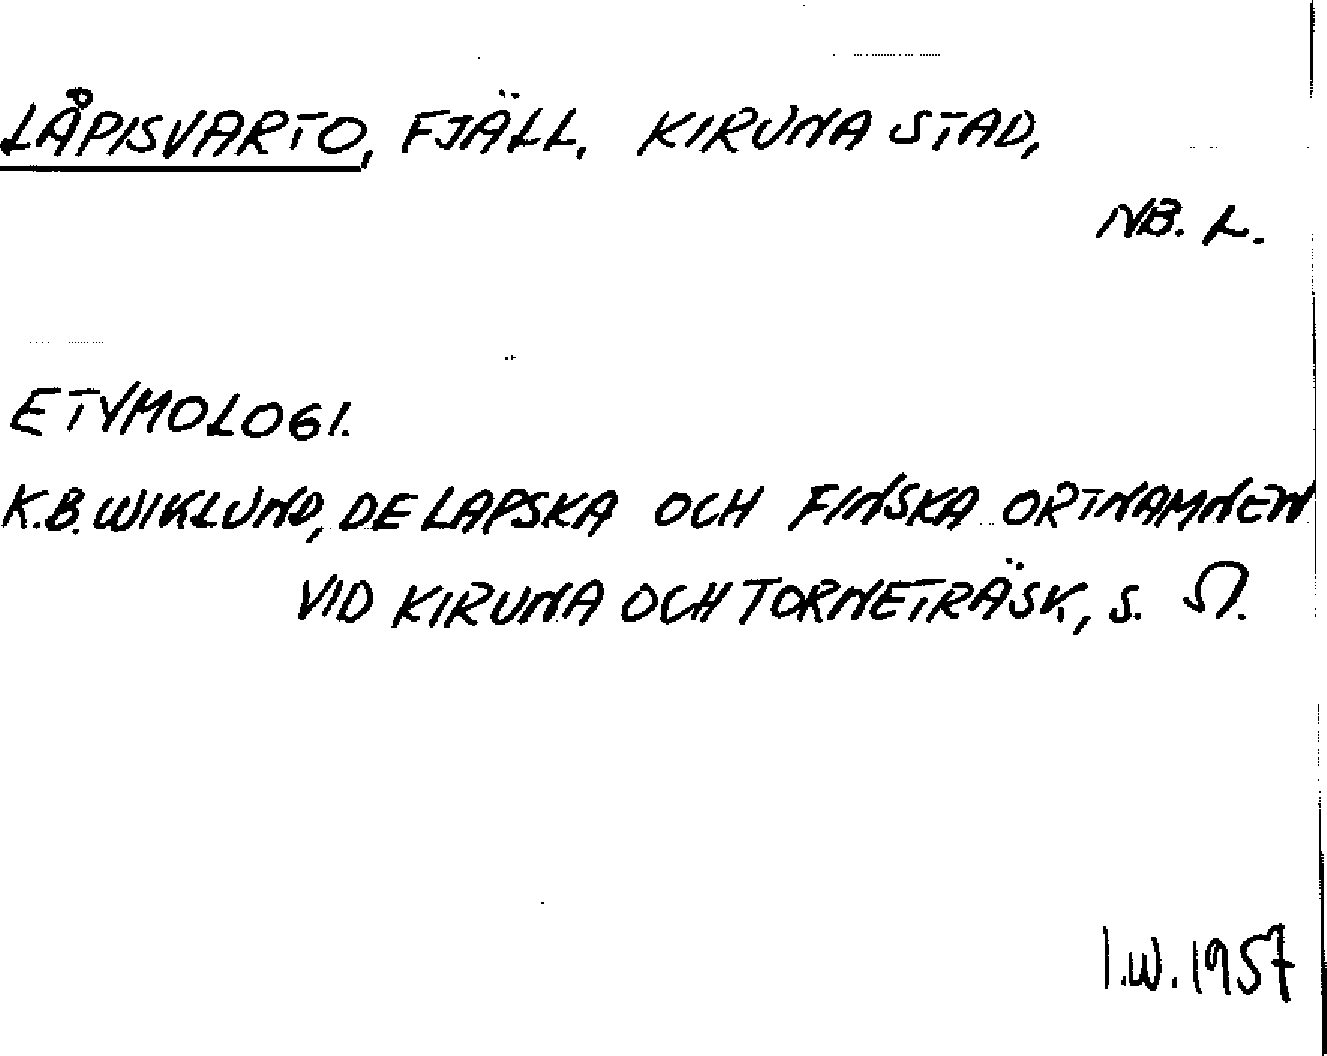 LÅPISVARTO, FJÄLL. KIRUNA STAD,
NB. L.
ETYMOLOGI.
K.B. WIKLUND, DE LAPSKA OCH FINSKA ORTNAMNEN
VID KIRUNA OCH TORNETRÄSK, S.
I.W. 1957